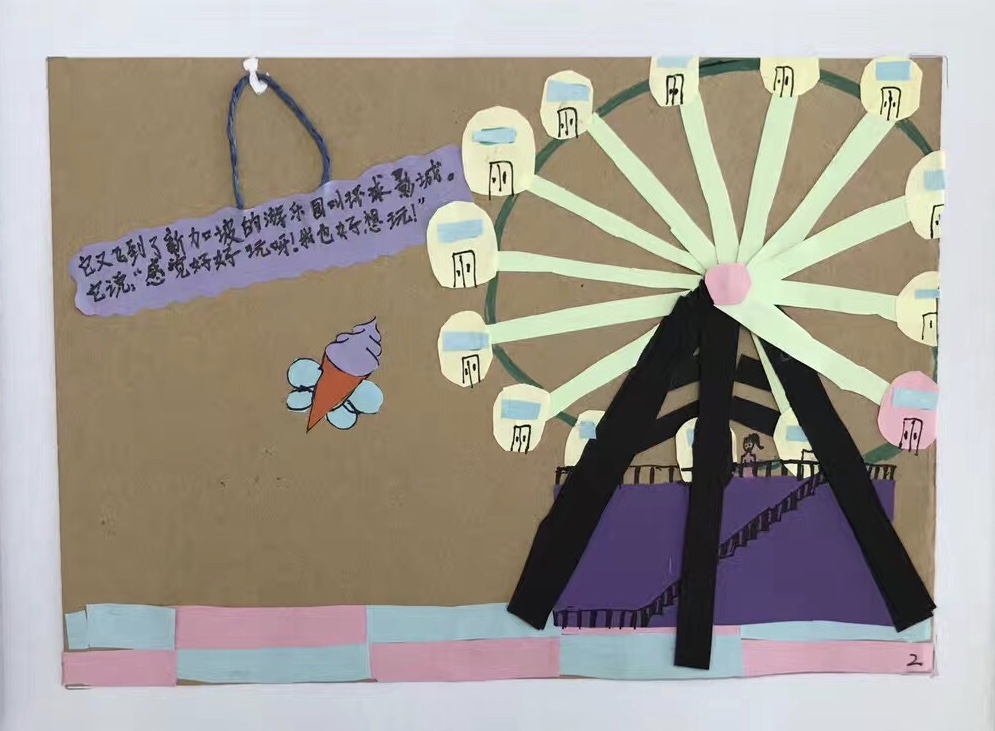 它又飞到了新加坡的游乐园叫环球影城。
它说:“感觉好好玩呀!我也好想玩!”
2